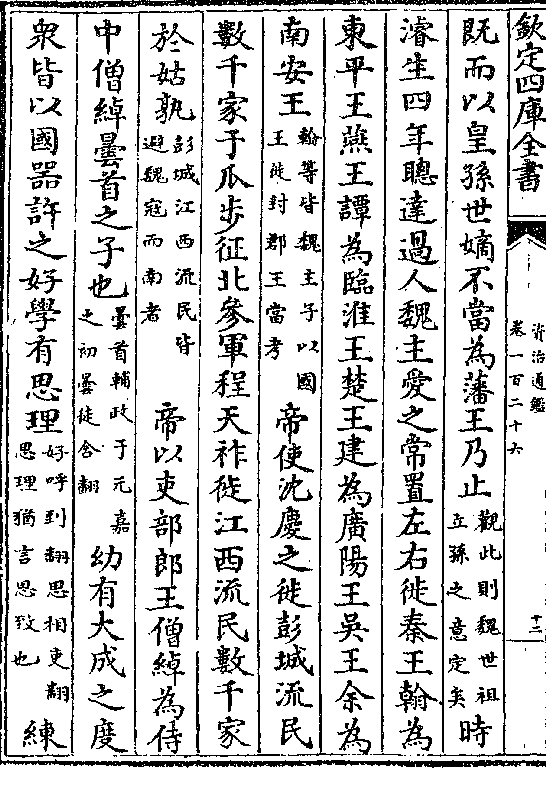 欽定四庫全書
資治通鑑
卷一百二十六
十二
既而以皇孫世嫡不當為藩王乃止觀此則魏世祖立孫之意定矣時
濬生四年聰達過人魏主愛之常置左右徙秦王翰為
東平王燕王譚為臨淮王楚王建為廣陽王吳王余為
南安王翰等皆魏主子以國王徙封郡王當考帝使沈慶之徙彭城流民
數千家于瓜步征北參軍程天祚徙江西流民數千家
於姑孰彭城江西流民皆避魏寇而南者帝以吏部郎王僧綽為侍
中僧綽曇首之子也曇首輔政于元嘉之初曇徒含翻幼有大成之度
衆皆以國器許之好學有思理好呼到翻思相吏翻思理猶言思致也練